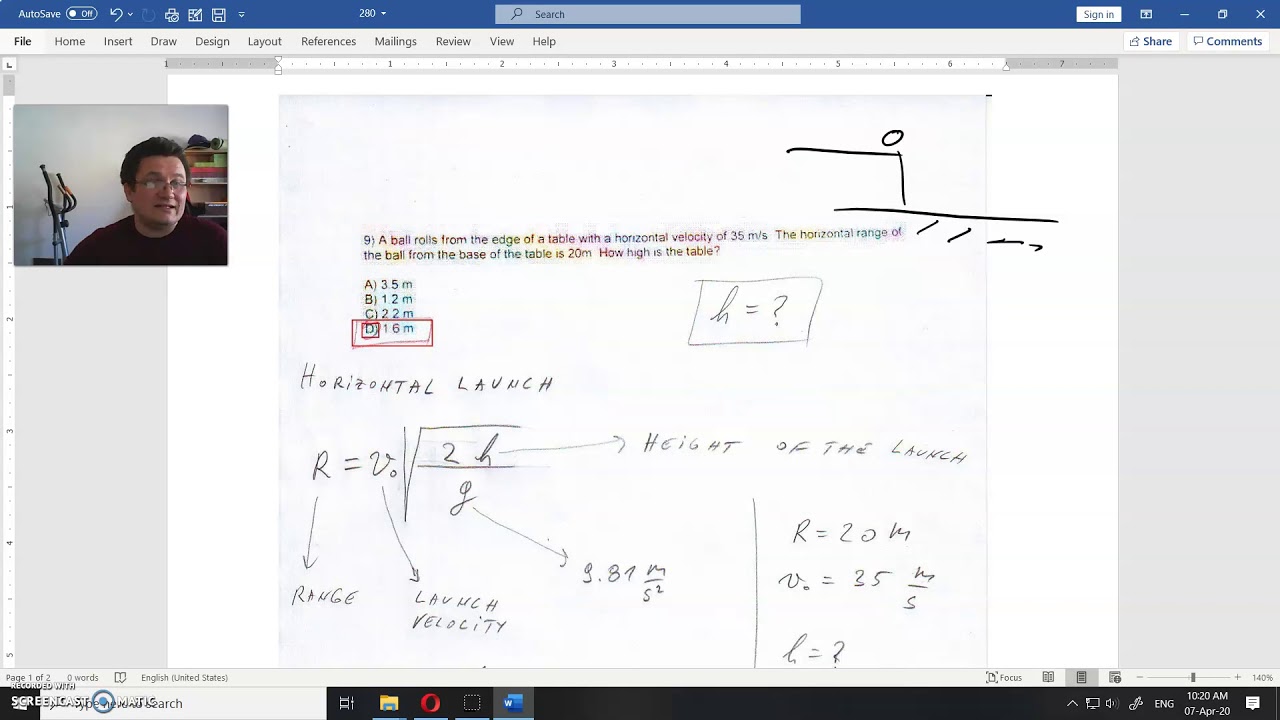 AutoSave Off 280 Search Sign in
File Home Insert Draw Design Layout References Mailings Review View Help Share Comments
1 1 2 3 4 5 6 7
9) A ball rolls from the edge of a table with a horizontal velocity of 35 m/s The horizontal range of
the ball from the base of the table is 20m How high is the table?
A) 3.5 m
B) 1.2 m
C) 2 2 m
D) 1 6 m
h = ?
HORIZONTAL LAUNCH
R = v₀ √(2h/g)
HEIGHT OF THE LAUNCH
9.81 m/s²
RANGE
LAUNCH
VELOCITY
R = 20 m
v₀ = 35 m/s
h = ?
Page 1 of 2 0 words English (United States) Focus 140%
RECORDED WITH
SCREENCAST MATIC
here to search
ENG
10:20 AM
07-Apr-20